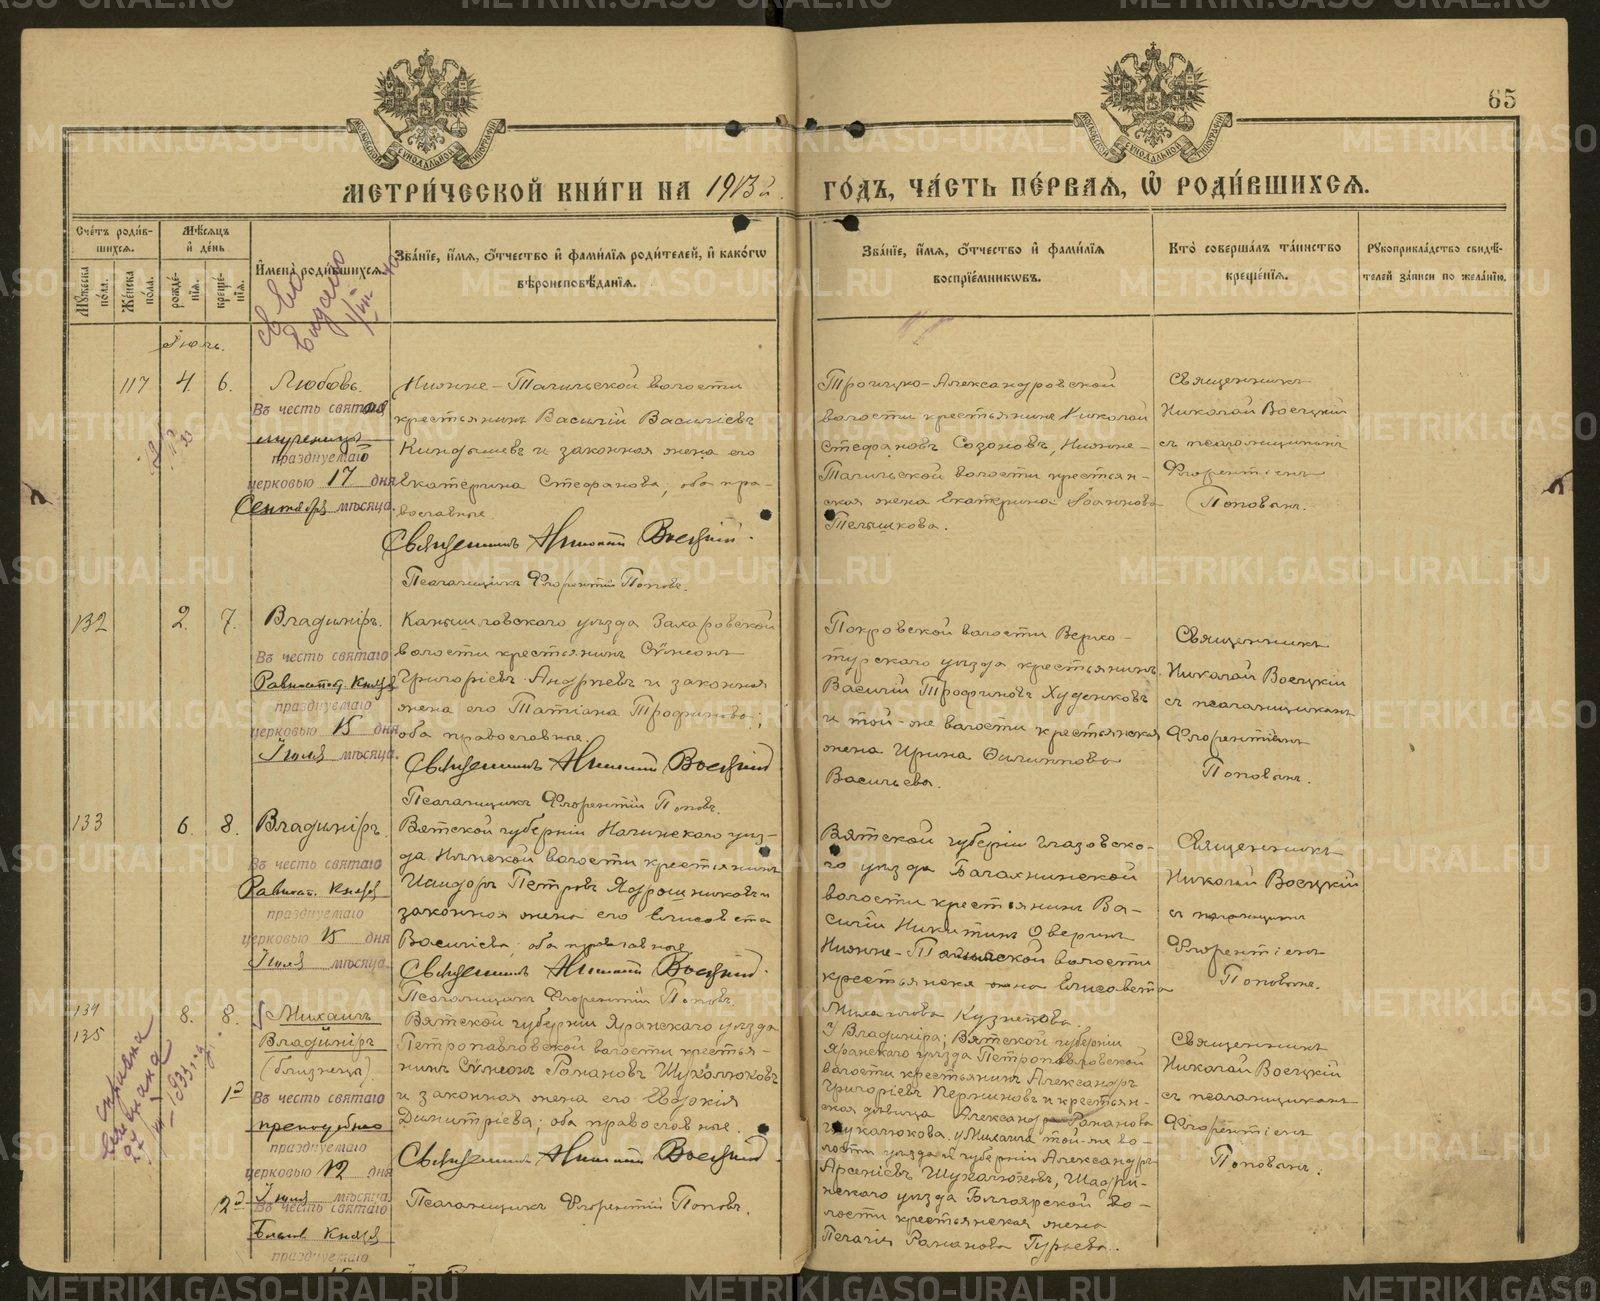 65
МЕТРИ́ЧЕСКОЙ КНИ́ГИ НА 1913 г. ГО́ДЪ, ЧА́СТЬ ПЕ́РВАЯ, Ѡ РОДИ́ВШИХСЯ.
Сче́тъ роди́вшихся.
Му́жеска по́ла.
Же́нска по́ла.
Мѣ́сяцъ и де́нь
рожде́нїя.
креще́нїя.
И҆мена̀ роди́вшихся.
Зва́нїе, и҆́мя, ѻ҆́тчество и҆ фами́лїя роди́телей, и҆ како́гѡ вѣроисповѣ́данїя.
Зва́нїе, и҆́мя, ѻ҆́тчество и҆ фами́лїя воспрїе́мникѡвъ.
Кто̀ соверша́лъ та́инство креще́нїя.
Рꙋкоприкла́дство свидѣ́телей за́писи по жела́нїю.
Іюль.
117 4. 6. Любовь.
Въ честь святой
мученицы
празднуемаго
церковью 17 дня
Сентября мѣсяца.
Нижне-Тагильской волости
крестьянинъ Василій Василіевъ
и законная жена его
Екатерина Стефанова, оба пра-
вославные.
Священникъ Николай Воецкій.
Псаломщикъ Флорентій Поповъ.
Троицко-Александровской
волости крестьянинъ Николай
Стефановъ Созоновъ, Нижне-
Тагильской волости крестьян-
ская жена Екатерина Іоаннова
Священникъ
Николай Воецкій
съ псаломщикомъ
Флорентіемъ
Поповымъ.
132 2. 7. Владиміръ.
Въ честь святаго
Равноап. Князя
празднуемаго
церковью 15 дня
Іюля мѣсяца.
Камышловскаго уѣзда Захаровской
волости крестьянинъ Сѵмеонъ
Григоріевъ Андреевъ и законная
жена его Татіана Трофимова;
оба православные.
Священникъ Николай Воецкій
Псаломщикъ Флорентій Поповъ.
Покровской волости Верхо-
турскаго уѣзда крестьянинъ
Василій Трофимовъ Худенковъ
и той-же волости крестьянская
жена Ирина Филиппова
Васильева.
Священникъ
Николай Воецкій
съ псаломщикомъ
Флорентіемъ
Поповымъ.
133 6. 8. Владиміръ.
Въ честь святаго
Равноап. Князя
празднуемаго
церковью 15 дня
Іюля мѣсяца.
Вятской губерніи Нолинскаго уѣз-
да волости крестьянинъ
Исидоръ Петровъ и
законная жена его Елисавета
Василіева оба православные
Священникъ Николай Воецкій.
Псаломщикъ Флорентій Поповъ.
Вятской губерніи Глазовска-
го уѣзда Балахнинской
волости крестьянинъ Ва-
силій Никитинъ
Нижне-Тагильской волости
крестьянская жена Елисавета
Михайлова Кузнецова.
Священникъ
Николай Воецкій
съ псаломщикомъ
Флорентіемъ
Поповымъ.
134 8. 8. Михаилъ
135 Владиміръ
(близнецы).
1й Въ честь святаго
преподобнаго
празднуемаго
церковью 12 дня
Іюля мѣсяца
2й Въ честь святаго
Князя
празднуемаго
Вятской губерніи Яранскаго уѣзда
Петропавловской волости крестья-
нинъ Сѵмеонъ Романовъ Шукалюковъ
и законная жена его Евдокія
Димитріева; оба православные.
Священникъ Николай Воецкій.
Псаломщикъ Флорентій Поповъ.
У Владиміра; Вятской губерніи
Яранскаго уѣзда Петропавловской
волости крестьянинъ Александръ
Григоріевъ и крестьян-
ская дѣвица Александра Романова
Шукалюкова. у Михаила той-же во-
лости уѣзда и губерніи Александръ
Арсеніевъ Шукалюковъ, Шадрин-
скаго уѣзда Бѣлоярской во-
лости крестьянская жена
Пелагія Романова Гурьева.
Священникъ
Николай Воецкій
съ псаломщикомъ
Флорентіемъ
Поповымъ.
METRIKI.GASO-URAL.RU